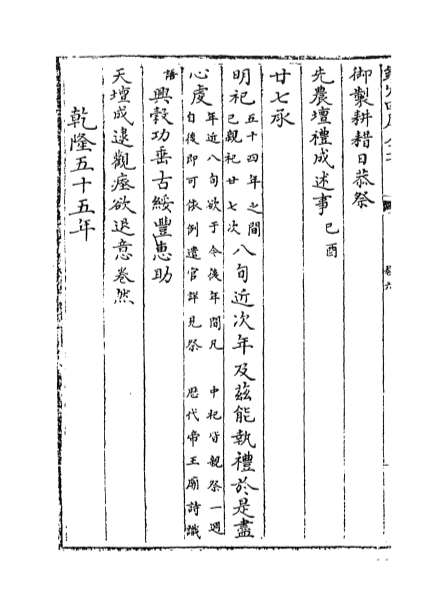 御製耕耤日恭祭
先農壇禮成述事 己酉
廿七承
明祀 五十四年之間
已親祀廿七次
八旬近次年及茲能執禮於是盡
心虔 年近八旬欲于今後年間凡 中祀皆親祭一週
自後即可依例遣官詳見祭 歷代帝王廟詩識
語 興穀功垂古綏豐惠助
天壇成逮觀瘞欲退意眷然
乾隆五十五年